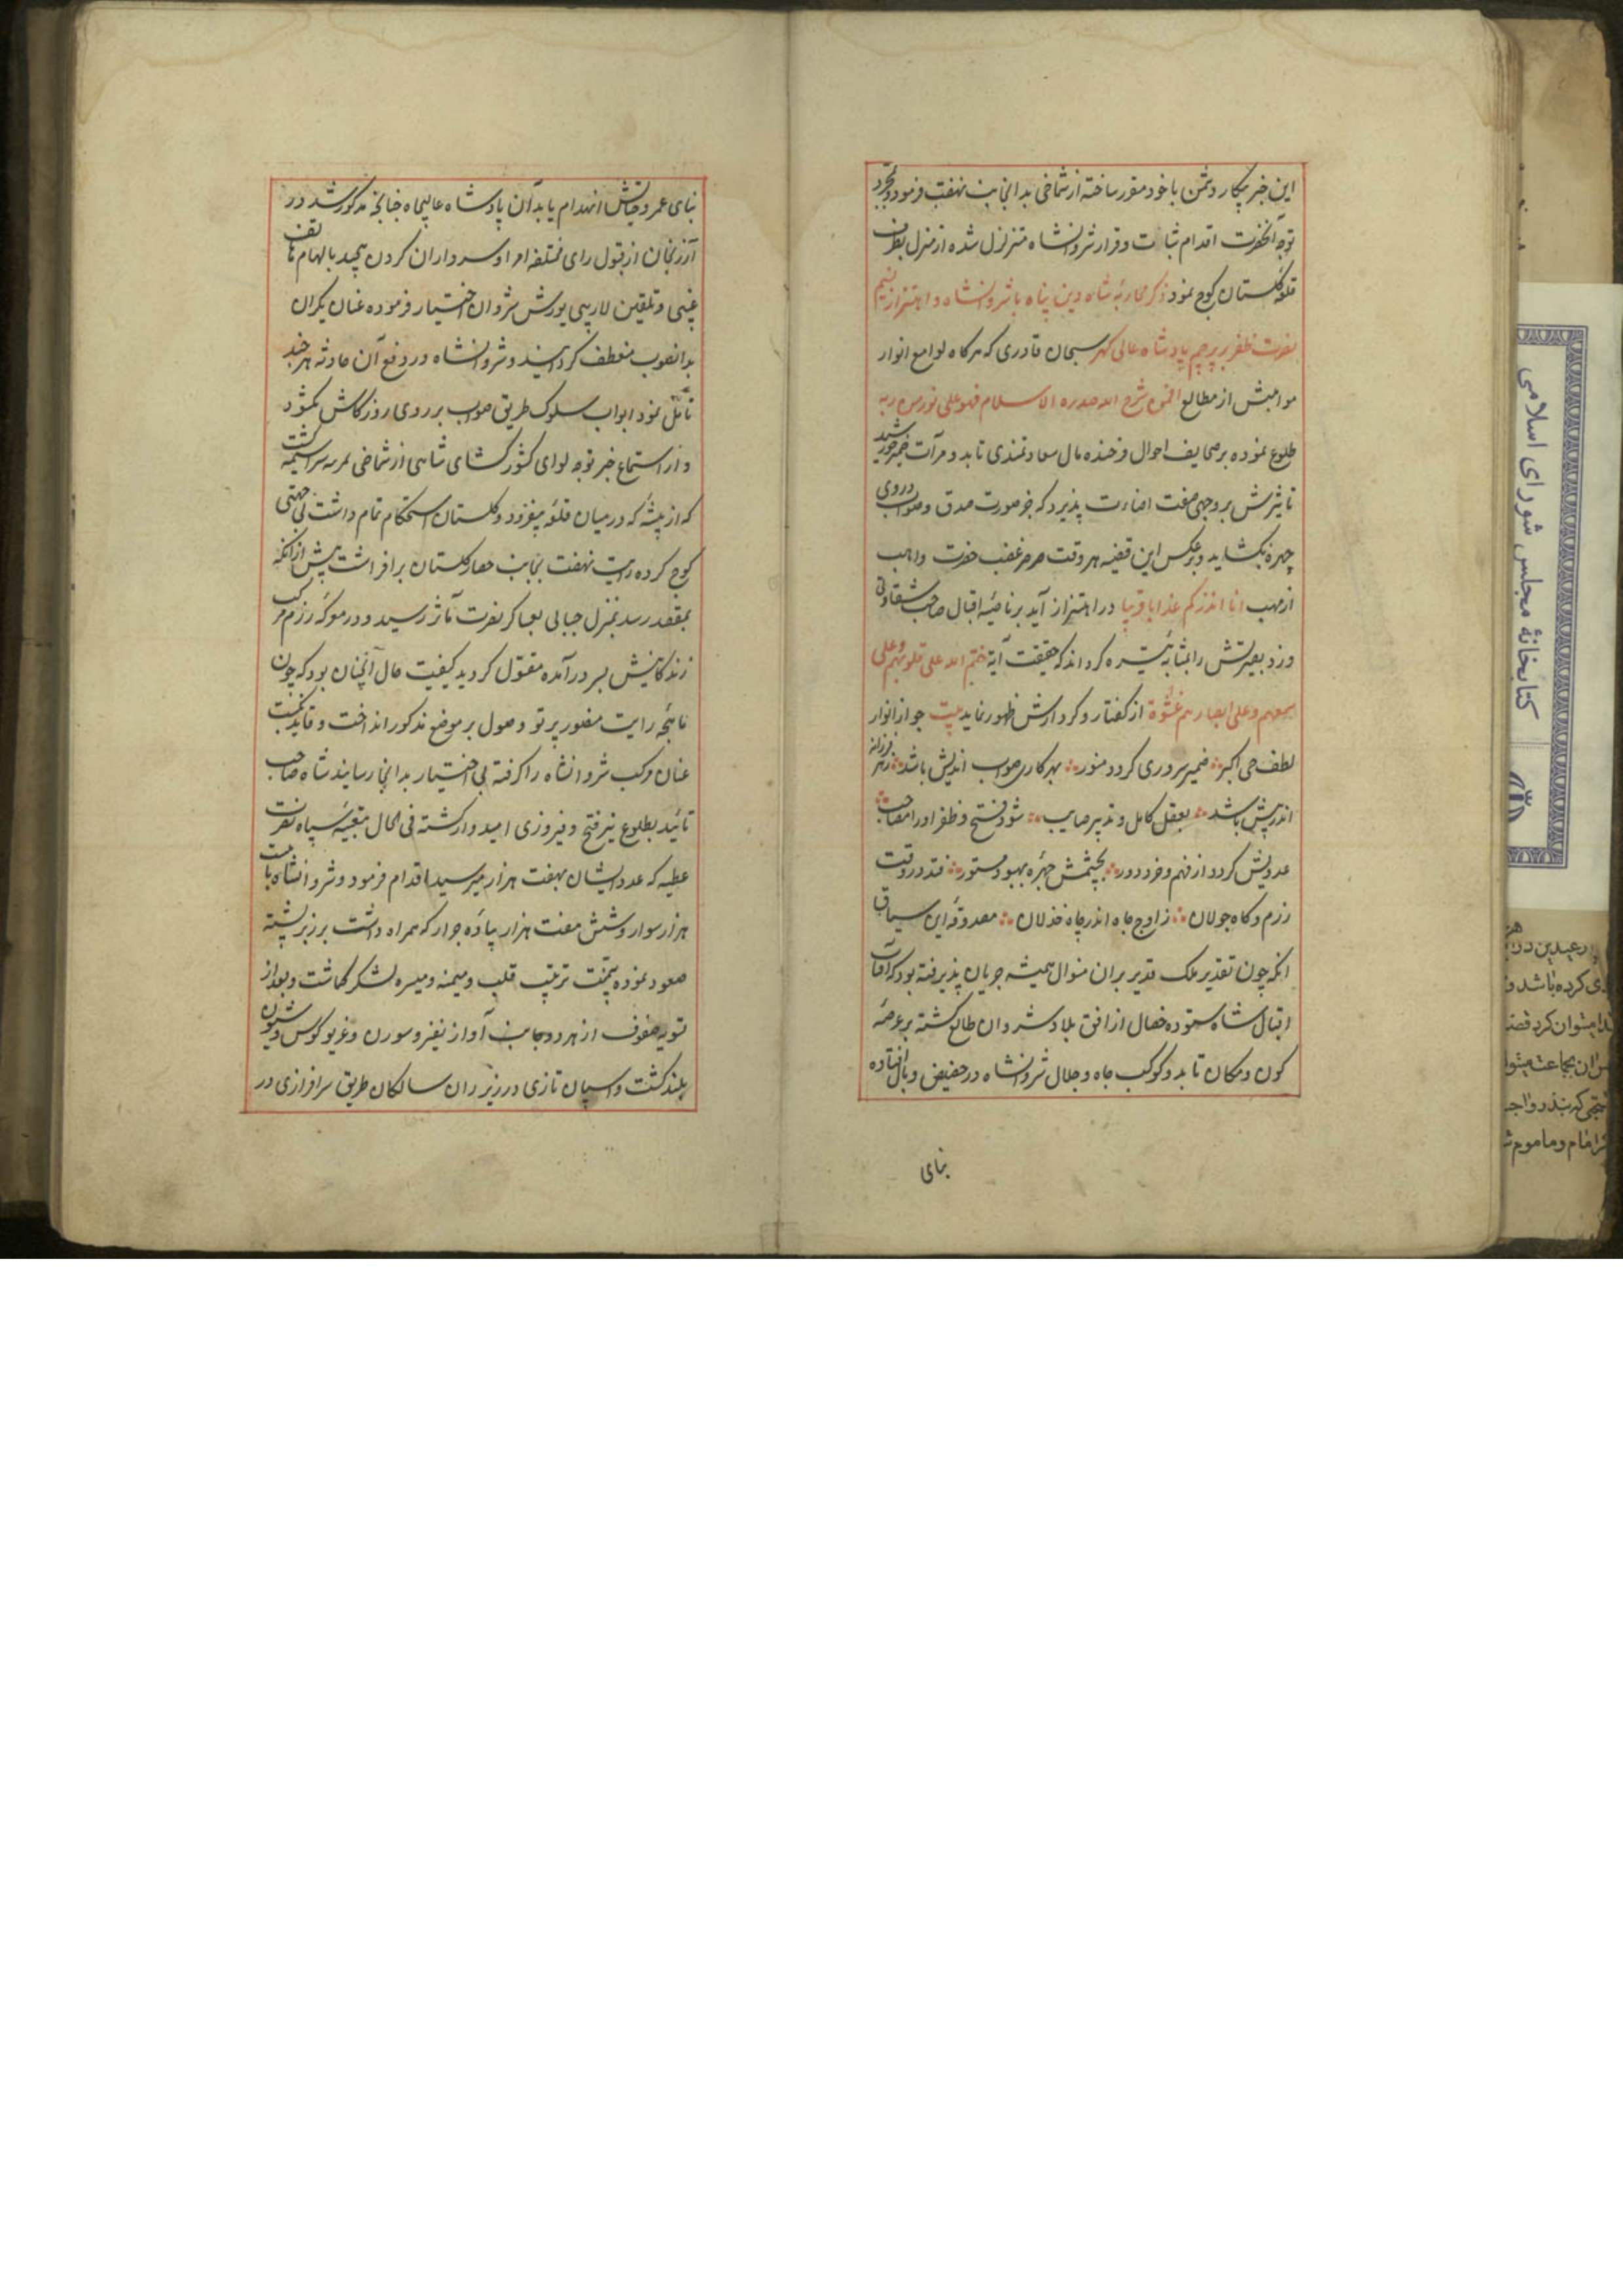 این خبر پیکار دشمن با خود مقرر ساخته از شماخی بدانجانب نهضت فرمود و بمجرد
توجه آنحضرت اقدام ثبات و قرار شروانشاه متزلزل شده از منزل بطرف
قلعه گلستان کوچ نمود ذکر محاربه شاه دین پناه با شروانشاه و اهتزاز نسیم
نصرت و ظفر بر پرچم پادشاه عالی گهر سبحان قادری که هر کاه لوامع انوار
مواهبش از مطالع افمن شرح الله صدره الاسلام فهو علی نور من ربه
طلوع نموده بر صحایف احوال فرخنده مال سعادتمندی تابد و مرآت ضمیر خورشید
تاثیرش بر وجهی صفت اضاءت پذیرد که جز صورت صدق و صواب در وی
چهره نکشاید و برعکس این قضیه هر وقت صرصر غضب حضرت واهب
از مهب انا انذرکم عذابا قریبا در اهتزاز آید بر ناصیه اقبال صاحب شقاوتی
وزد بصیرتش را بمثابه تیره کرداند که حقیقت آیة ختم الله علی قلوبهم و علی
سمعهم و علی ابصارهم غشوة از کفتار و کردارش ظهور نماید بیت جو از انوار
لطف حی اکبر ضمیر سروری کردد منور بهر کاری صواب اندیش باشد ز هر فرزانه
اندر پیش باشد بعقل کامل و تدبیر صایب شود فتح و ظفر او را مصاحب
عدویش کردد از فهم و خرد دور بچشمش چهره بهبود مستور فتد در وقت
رزم و کاه جولان ز اوج جاه اندر چاه خذلان مصدوقه این سیاق
انکه چون تقدیر ملک قدیر بران منوال همیشه جریان پذیرفته بود که آفتاب
اقبال شاه ستوده خصال از افق بلاد شروان طالع کشته بر عرصه
کون و مکان تابد و کوکب جاه و جلال شروانشاه در حضیض وبال افتاده
بنای
بنای عمر و حیاتش انهدام یابد آن پادشاه عالیجاه چنانچه مذکور شد در
آذربجان از قبول رای مختلفه امرا و سرداران کردن پیچید بالهام هاتف
غیبی و تلقین لاریبی یورش شروان اختیار فرموده عنان یکران
بدانصوب منعطف کردانید و شروانشاه در دفع آن حادثه هر چند
تامل نمود ابواب سلوک طریق صواب بر روی روزکارش نکشود
و از استماع خبر توجه لوای کشور کشای شاهی از شماخی سراسیمه کشت
که از بیشه که در میان قلعه بیغرد و کلستان استحکام تمام داشت بی جهتی
کوچ کرده رایت نهضت بجانب حصار کلستان برافراشت پیش از انکه
بمقصد رسد بمنزل جبانی بعساکر نصرت مآثر رسید و در معرکه رزم مرکب
زندکانیش بسر درآمده مقتول کردید کیفیت حال آنچنان بود که چون
ماهیچه رایت منصور پرتو وصول بر موضع مذکور انداخت و قاید نکبت
عنان مرکب شروانشاه را کرفته بی اختیار بدانجا رسانید شاه صاحب
تائید بطلوع نیر فتح و فیروزی امیدوار کشته فی الحال بتعبیه سپاه نصرت
عطیه که عدد ایشان بهفت هزار میرسید اقدام فرمود و شروانشاه با بیست
هزار سوار و شش هفت هزار پیاده جرار که همراه داشت بر زبر پشته
صعود نموده همت بترتیب قلب و میمنه و میسره لشکر کماشت و بعد از
تسویه صفوف از هر دو جانب آواز نفیر و سورن و غریو کوس و شیون
بلند کشت و اسپان تازی در زیر ران سالکان طریق سرافرازی در
کتابخانهٔ مجلس شورای اسلامی